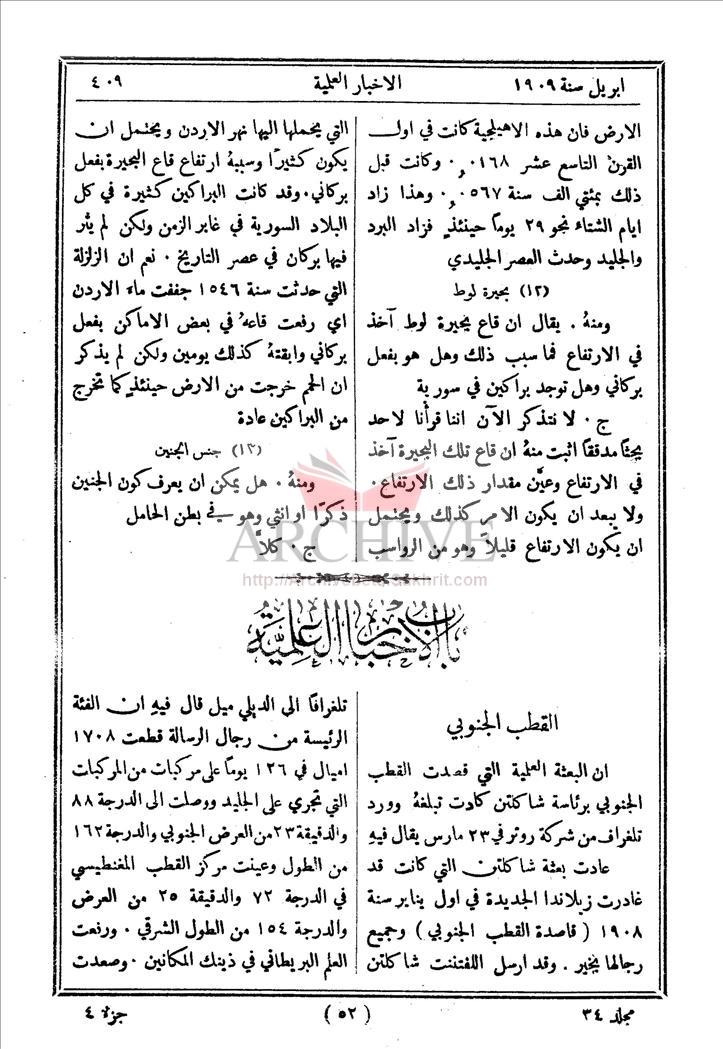 ابريل سنة ١٩٠٩
الاخبار العلمية
٤٠٩
الارض فان هذه الاهيلجية كانت في اول
القرن التاسع عشر ٠١٦٨,٠ وكانت قبل
ذلك بمئتي الف سنة ٠٥٦٧,٠ وهذا زاد
ايام الشتاء نحو ٢٩ يوماً حينئذٍ فزاد البرد
والجليد وحدث العصر الجليدي
(١٢) بحيرة لوط
ومنهُ . يقال ان قاع بحيرة لوط آخذ
في الارتفاع فما سبب ذلك وهل هو بفعل
بركاني وهل توجد براكين في سورية
ج ٠ لا نتذكر الآن اننا قرأنا لاحد
بحثاً مدققاً اثبت منهُ ان قاع تلك البحيرة آخذ
في الارتفاع وعيَّن مقدار ذلك الارتفاع ٠
ولا يبعد ان يكون الامر كذلك ويحتمل
ان يكون الارتفاع قليلاً وهو من الرواسب
التي يحملها اليها نهر الاردن ويحتمل ان
يكون كثيرًا وسببهُ ارتفاع قاع البحيرة بفعل
بركاني . وقد كانت البراكين كثيرة في كل
البلاد السورية في غابر الزمن ولكن لم يثر
فيها بركان في عصر التاريخ ٠ نعم ان الزلزلة
التي حدثت سنة ١٥٤٦ جففت ماء الاردن
اي رفعت قاعهُ في بعض الاماكن بفعل
بركاني وابقتهُ كذلك يومين ولكن لم يذكر
ان الحمم خرجت من الارض حينئذٍ كما تخرج
من البراكين عادة
(١٣) جنس الجنين
ومنهُ ٠ هل يمكن ان يعرف كون الجنين
ذكرًا او انثى وهو في بطن الحامل
ج ٠ كلاَّ
ARCHIVE
http://Archivebeta.Sakhrit.com
باب الاخبار العلمية
القطب الجنوبي
ان البعثة العلمية التي قصدت القطب
الجنوبي برئاسة شاكلتن كادت تبلغهُ وورد
تلغراف من شركة روتر في ٢٣ مارس يقال فيهِ
عادت بعثة شاكلتن التي كانت قد
غادرت زيلاندا الجديدة في اول يناير سنة
١٩٠٨ ( قاصدة القطب الجنوبي ) وجميع
رجالها بخير . وقد ارسل اللفتننت شاكلتن
تلغرافاً الى الديلي ميل قال فيهِ ان الفئة
الرئيسة من رجال الرسالة قطعت ١٧٠٨
اميال في ١٢٦ يوماً على مركبات من المركبات
التي تجري على الجليد ووصلت الى الدرجة ٨٨
والدقيقة ٢٣ من العرض الجنوبي والدرجة ١٦٢
من الطول وعينت مركز القطب المغنطيسي
في الدرجة ٧٢ والدقيقة ٢٥ من العرض
والدرجة ١٥٤ من الطول الشرقي . ورفعت
العلم البريطاني في ذينك المكانين . وصعدت
مجلد ٣٤
( ٥٢ )
جزء ٤